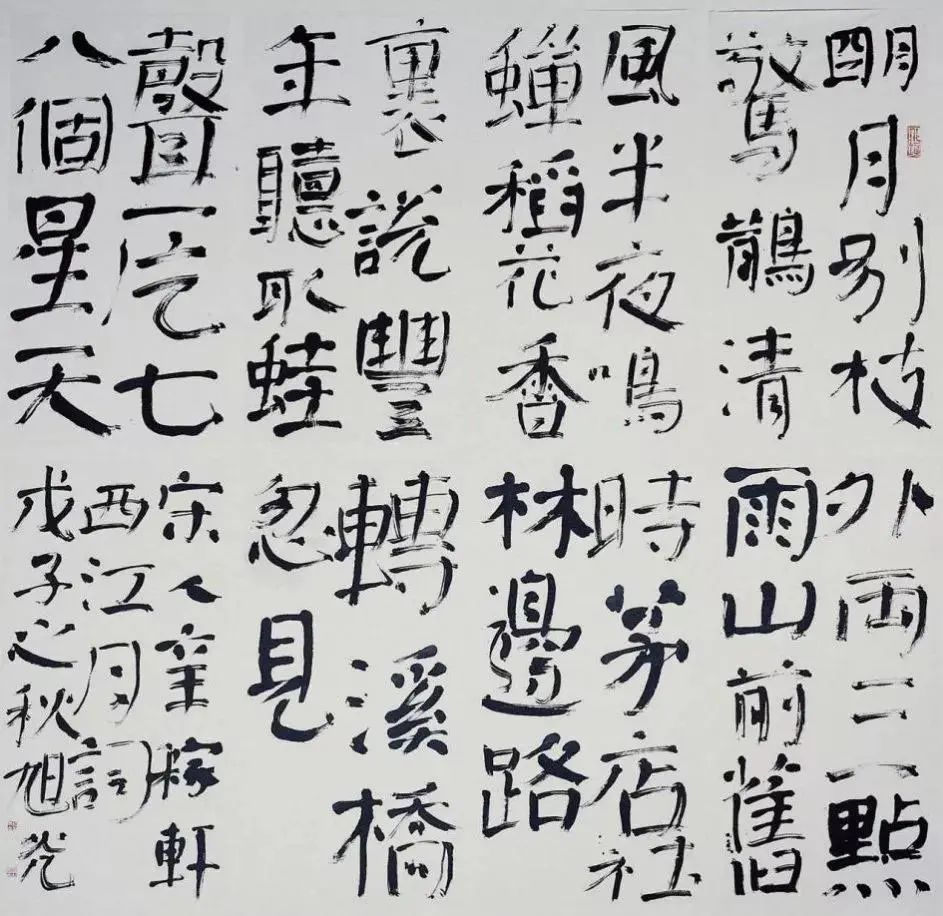 明月别枝
驚鵲清
風半夜鳴
蟬稻花香
裏説豐
年聽取蛙
聲一片七
八個星天
外两三點
雨山前舊
時茅店社
林邊路
轉溪橋
忽見
宋人辛稼軒
西江月詞
戊子之秋旭光